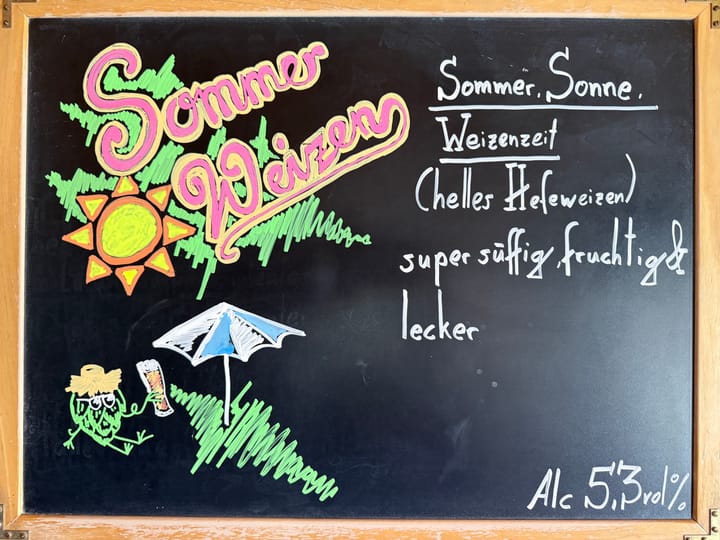 Sommer
Weizen
Sommer, Sonne,
Weizenzeit
(helles Hefeweizen)
super süffig, fruchtig &
lecker
Alc 5,3 vol%